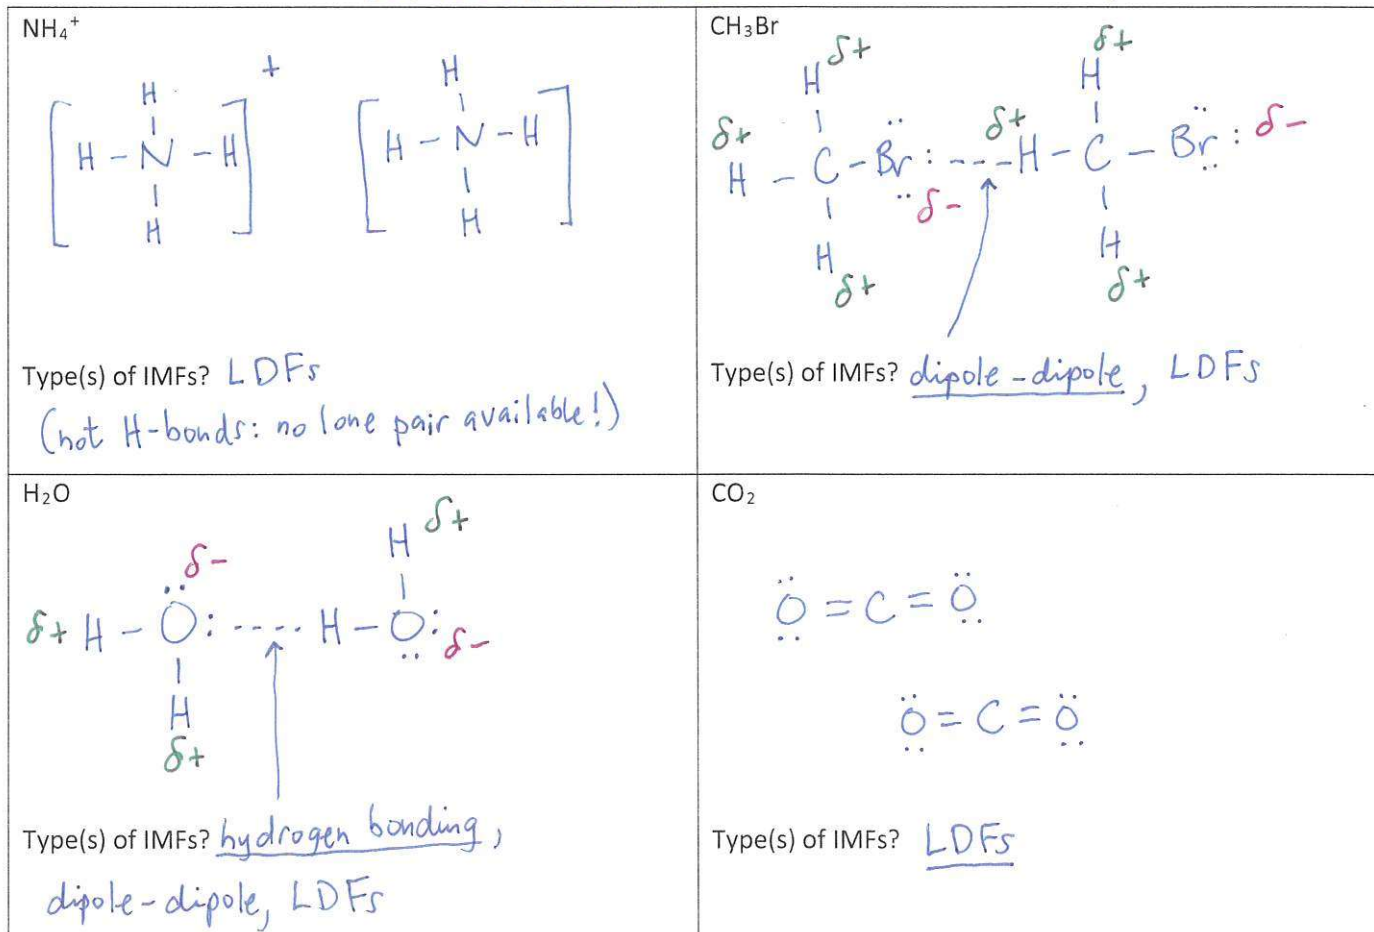 NH₄⁺
H
H – N – H
H
+
H
H – N – H
H
Type(s) of IMFs? LDFs
(not H-bonds: no lone pair available!)
CH₃Br
H δ+
δ+
H – C – Br : ---- H – C – Br : δ-
δ+
H
δ+
δ-
H
δ+
H
δ+
Type(s) of IMFs? dipole-dipole, LDFs
H₂O
δ-
H δ+
δ+ H – O : ---- H – O : δ-
H
δ+
Type(s) of IMFs? hydrogen bonding,
dipole-dipole, LDFs
CO₂
O = C = O
O = C = O
Type(s) of IMFs? LDFs